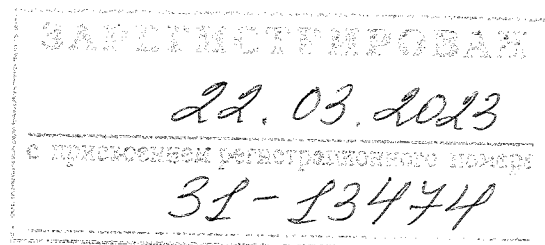 ЗАРЕГИСТРИРОВАН
22.03.2023
с присвоением регистрационного номера
31-13474